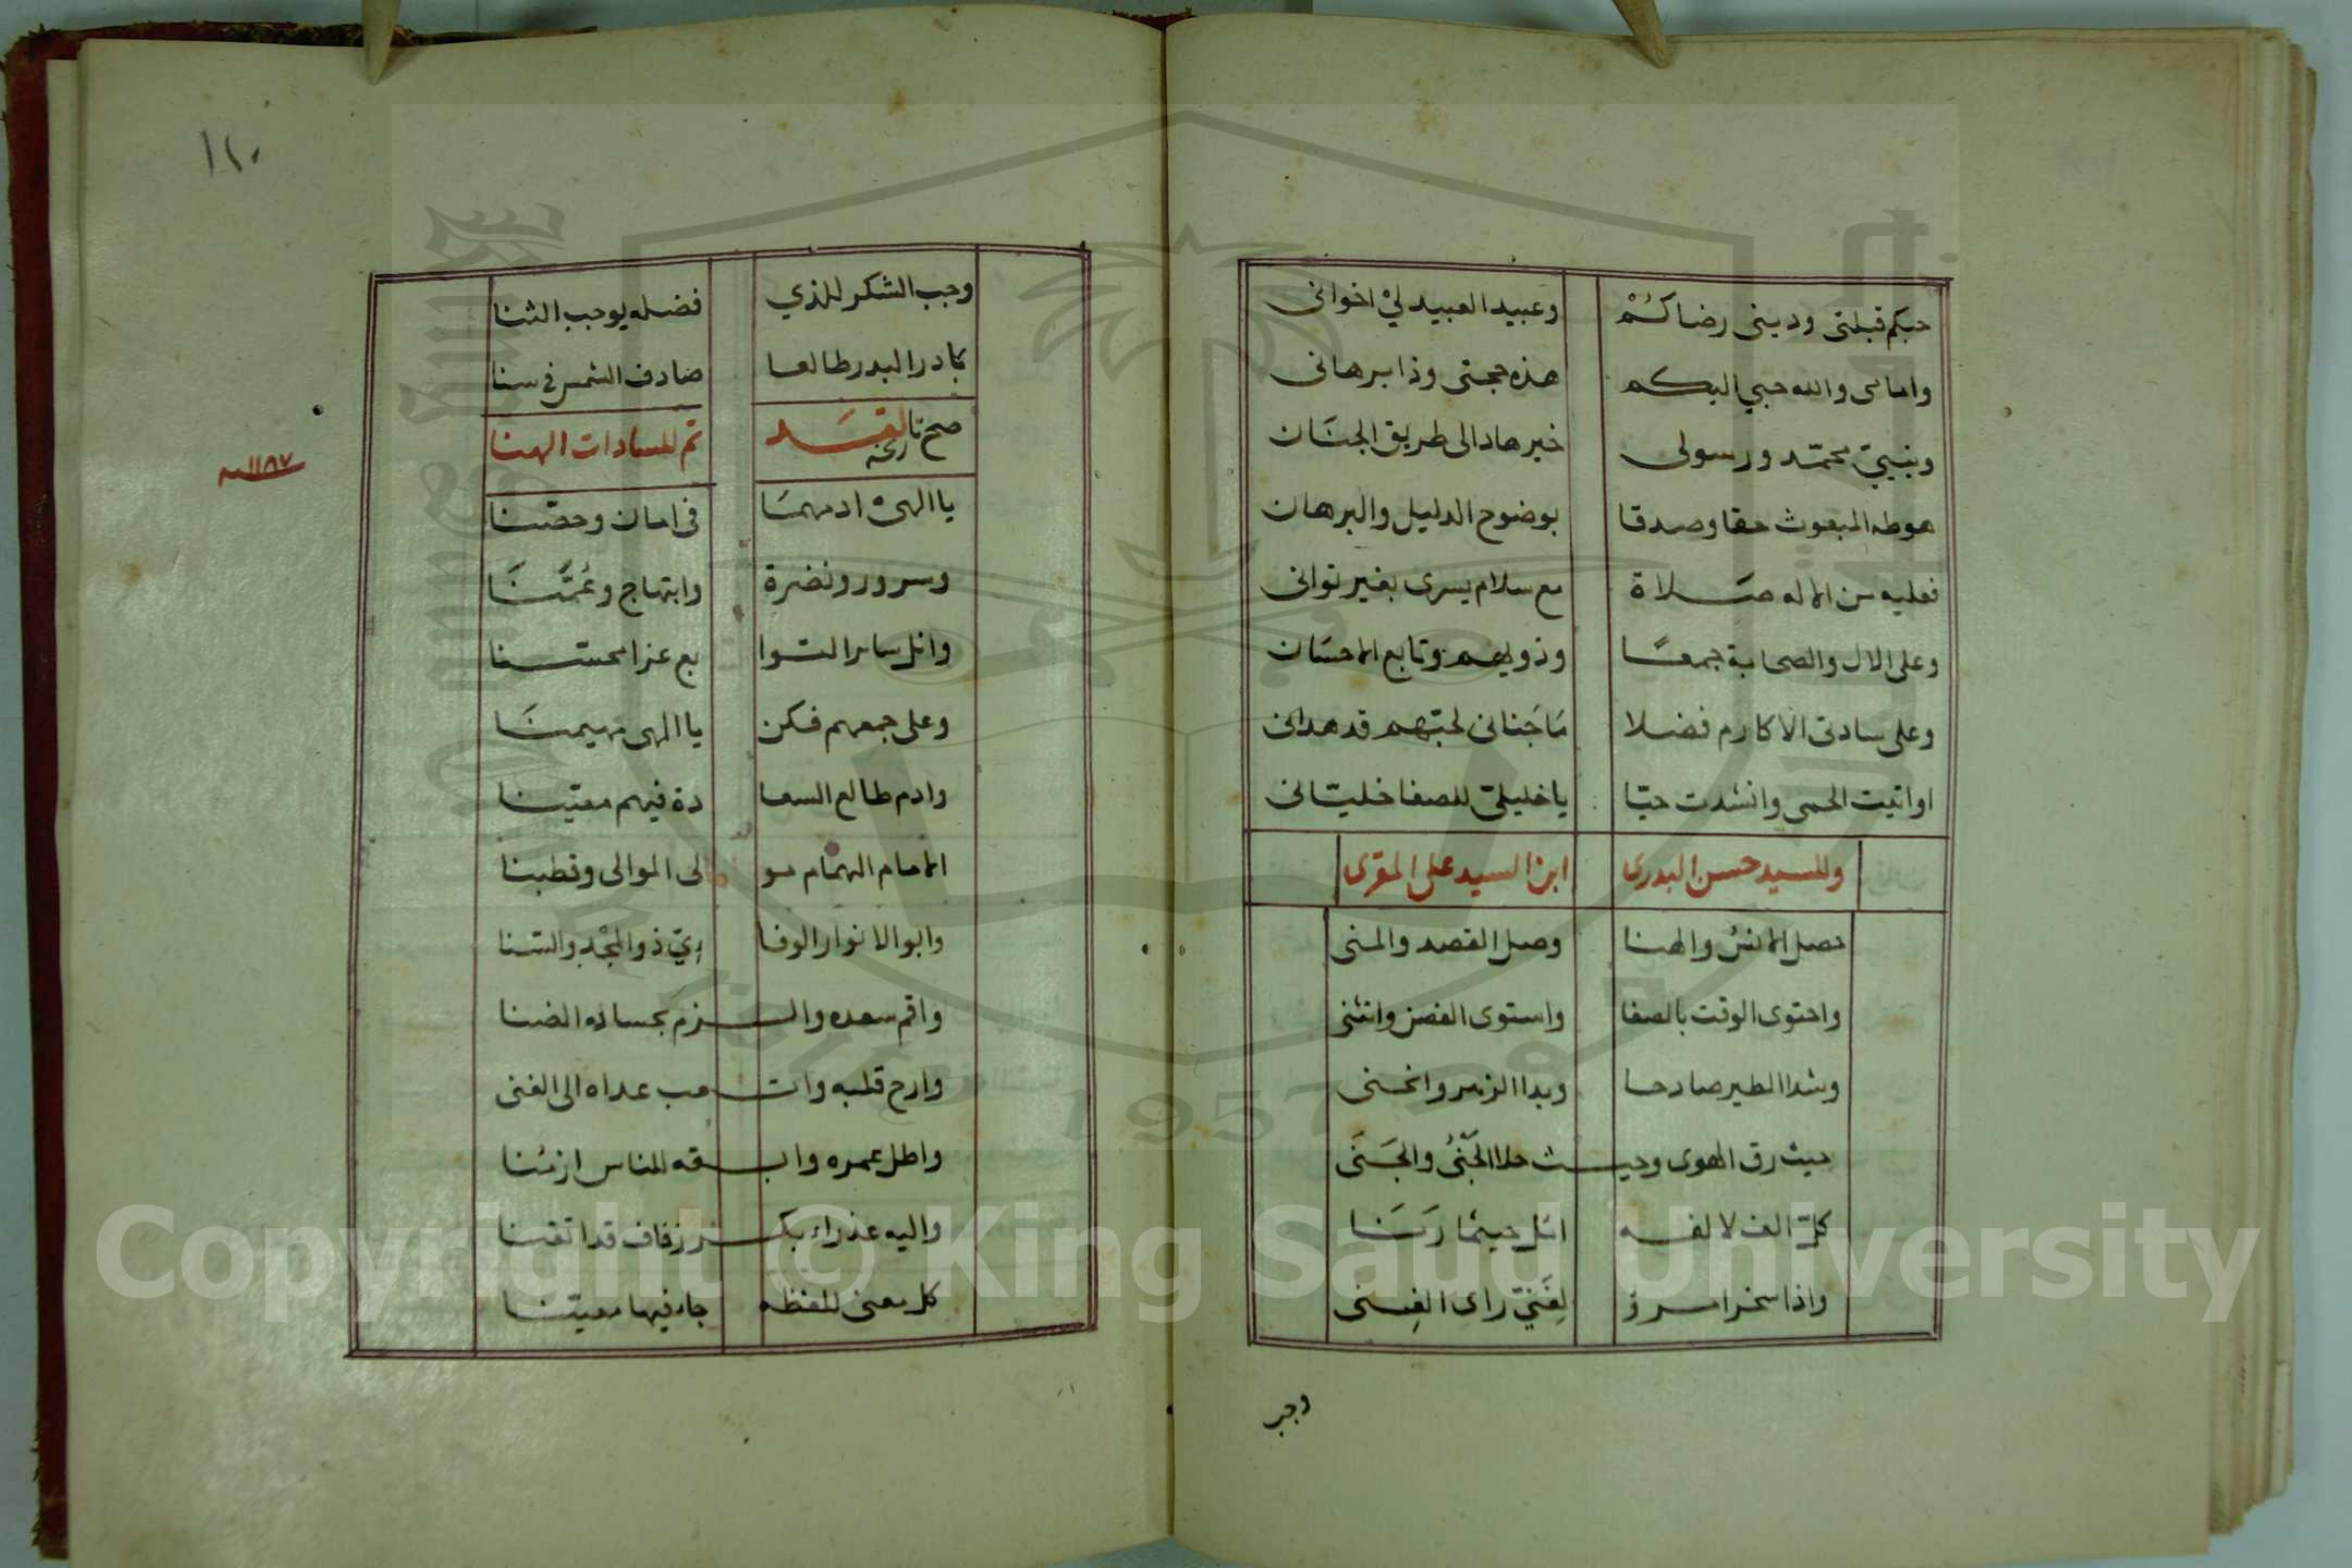 حبكم قبلتى ودينى رضاكُمْ وعبيد العبيد ليْ اخوانى
وامامى والله حبي اليكم هذه حجتى وذا برهانى
ونبييّ محمّد ورسولى خير هاد الى طريق الجنَان
هو طه المبعوث حقا وصدقا بوضوح الدليل والبرهان
فعليه من الاله صَلاة مع سلام يسرى بغير توانى
وعلى الال والصحابة جمعًا وذويهم وتابع الاحسَان
وعلى سادتى الاكارم فضلا مَا جَنانى لحبّهم قد هدانى
او اتيت الحمى وانشدت حبّا يا خليليّ للصفا خليّانى
وللسيد حسن البدرى ابن السيد على المقرى
حصل الانسُ والهنا وصل القصد والمنى
واحتوى الوقت بالصفا واستوى الغصن وانثنى
وشدا الطير صادحا وبدا الزهر وانحنى
حيث رق الهوى وحيث حلا الجَنْىُ والجَنَى
كلّ الف لالفه اتل حيثما رَنَا
واذا سخر امرؤ لِغَنيّ راى الغِنى
وجب
١٢٠
وجب الشكر للذي فضله يوجب الثنا
بادر البدر طالعا صادف الشمس فى سنا
صح تاريخه لقد تم للسادات الهنا
١١٨٧ سنه
يا الهى ادمهمَا فى امان وحصّنا
وسرور ونضرة وابتهاج وعُمَّنَا
وانل سائر التوا بع عزا محسّنا
وعلى جمعهم فكن يا الهى مهيمنَا
وادم طالع السعا دة فيهم معيّنا
الامام الهمام مو لى الموالى وقطبنا
وابو الانوار الوفا ءيّ ذو المجْد والسّنا
واقم سعده والزم بحساده الضنا
وارح قلبه واتعب عداه الى الفنى
واطل عمره وابقه للناس ازمنا
واليه عذراء بكر زفاف قد اتقنا
كل معنى للفظه جاء فيها معيّنا
Copyright © King Saud University
1957